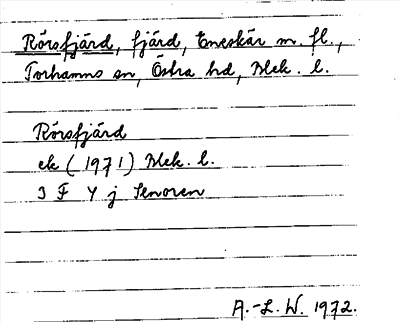 Rörsfjärd, fjärd, Eneskär m. fl.,
Torhamns sn, Östra hd, Blek. l.
Rörsfjärd
ek (1971) Blek. l.
3 F 4 j Senoren
A.-L. W. 1972.